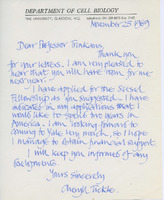 DEPARTMENT OF CELL BIOLOGY
THE UNIVERSITY, GLASGOW, W.2.
November 25 1969
Dear Professor Trinkaus,
Thank you
for your letters. I am very pleased to
hear that you will have room for me
next year.
I have applied for the
Fellowship as you suggested. I have
indicated in my applications that I
would like to spend two years in
America. I am looking forward to
coming to Yale very much, so I hope
I manage to obtain financial support.
I will keep you informed of any
developments.
Yours Sincerely
Cheryll Tickle.